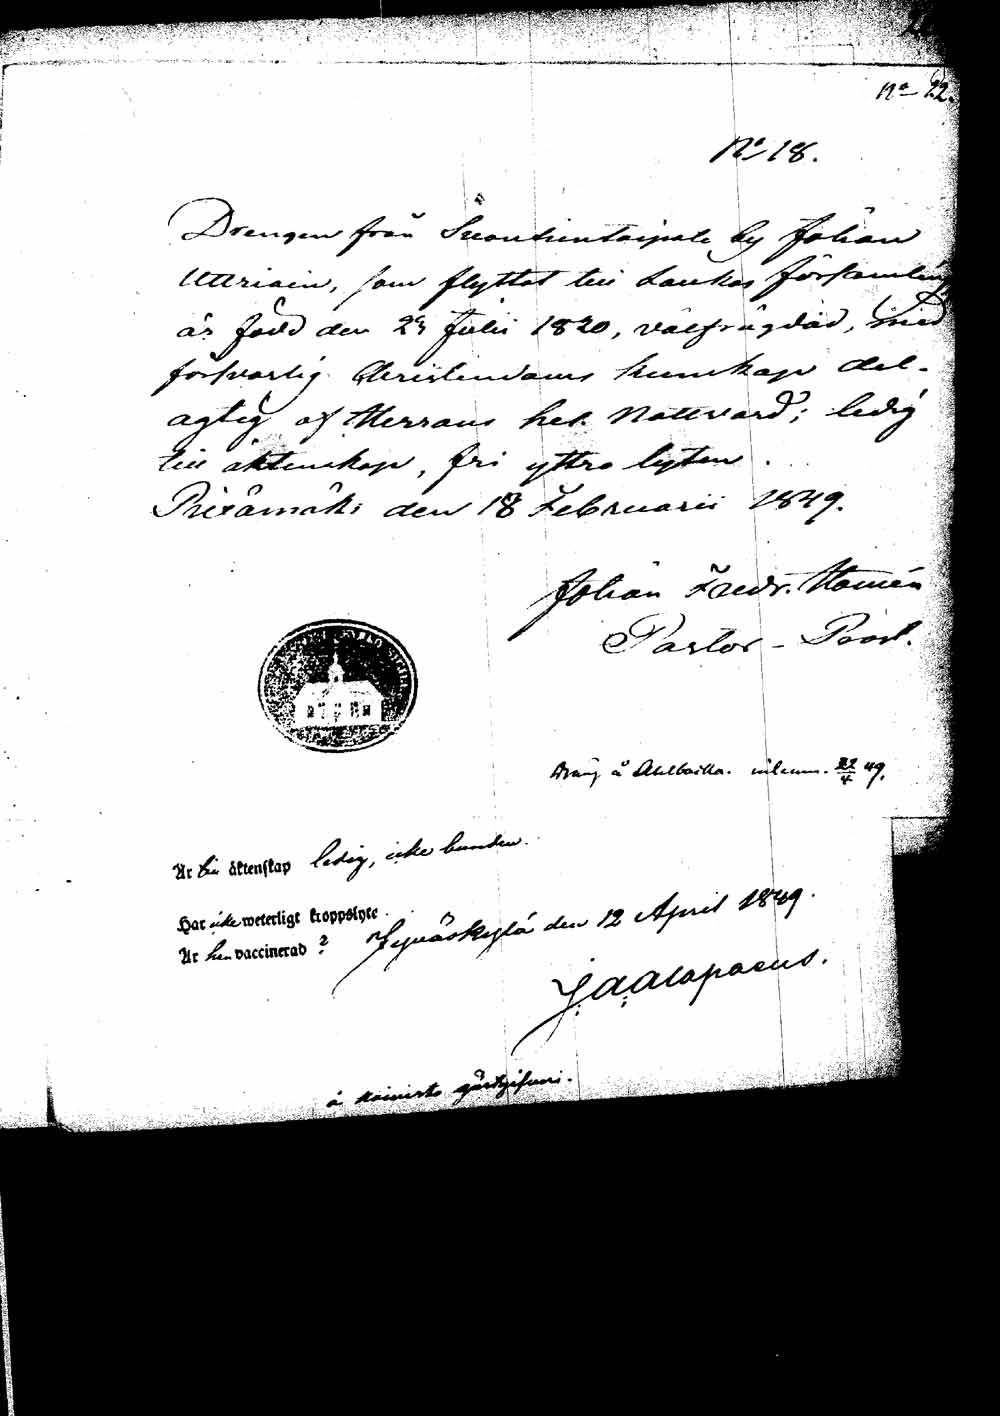 No 22.
No 18.
Drengen från by Johan
Uttriain, som flyttat till Laukas församling
är född den 23 Julii 1820, välfrägdad, med
försvarlig Christendoms kunskap del-
agtig af Herrans hel. Nattvard; ledig
till äktenskap, fri yttra lyten.
Piexämäki den 18 Februarii 1849.
Johan Fredr. Homén
Pastor - Prost.
Dräng å inkom. 22/4 49.
Är till äktenskap ledig, icke bunden.
Har icke weterligt kroppslyte.
Är han vaccinerad?
Jyväskylä den 12 April 1849.
J. A. Alopaeus.
å gästgifveri.